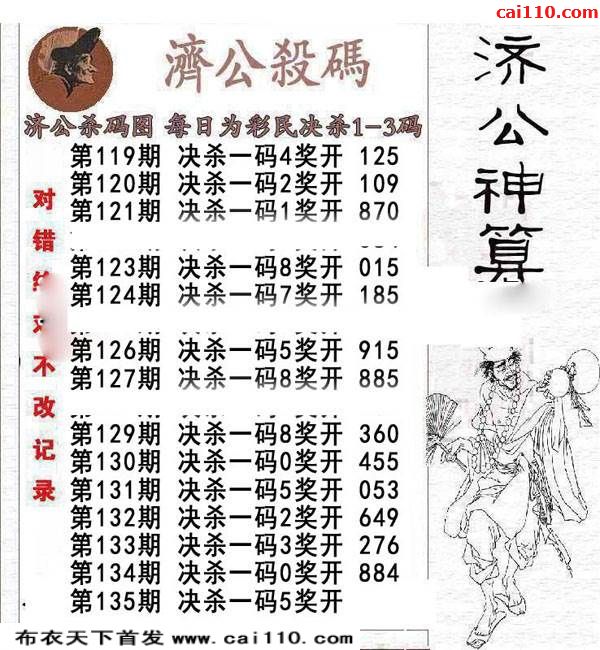 cai110.com
濟公殺碼
济公杀码图 每日为彩民决杀1-3码
第119期 决杀一码4奖开 125
第120期 决杀一码2奖开 109
第121期 决杀一码1奖开 870
第123期 决杀一码8奖开 015
第124期 决杀一码7奖开 185
第126期 决杀一码5奖开 915
第127期 决杀一码8奖开 885
第129期 决杀一码8奖开 360
第130期 决杀一码0奖开 455
第131期 决杀一码5奖开 053
第132期 决杀一码2奖开 649
第133期 决杀一码3奖开 276
第134期 决杀一码0奖开 884
第135期 决杀一码5奖开
对错
不改记录
济公神算
布衣天下首发 www.cai110.com